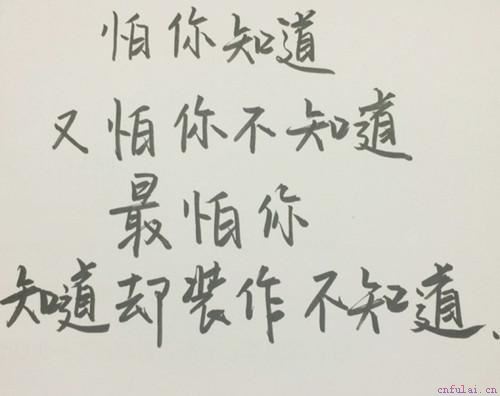 怕你知道
又怕你不知道
最怕你
知道却装作不知道、
cnfulai.cn